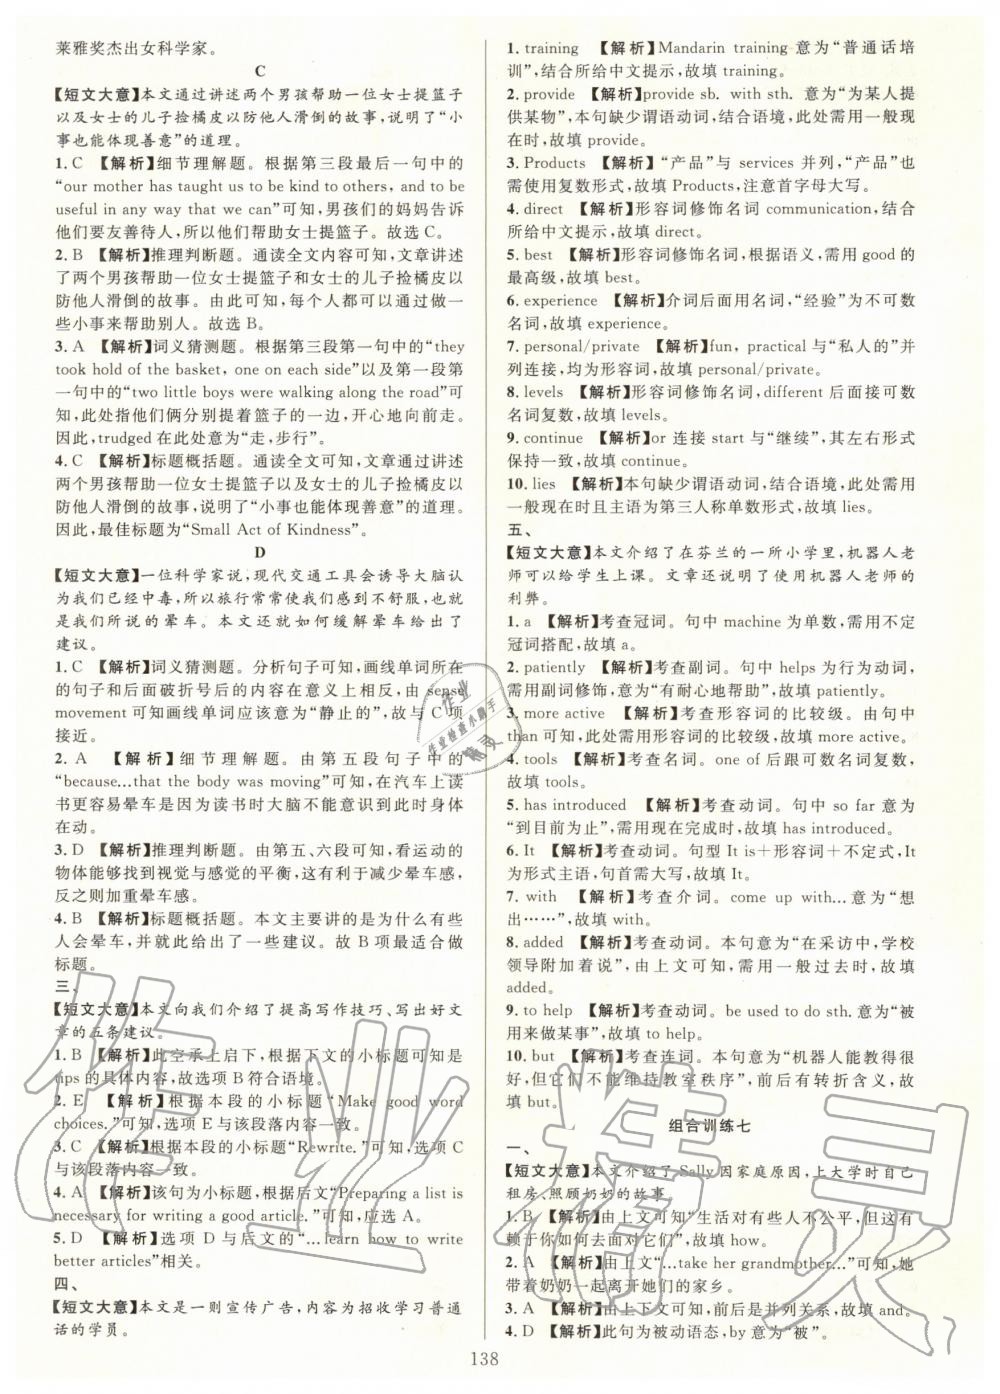 莱雅奖杰出女科学家。
C
【短文大意】本文通过讲述两个男孩帮助一位女士提篮子
以及女士的儿子捡橘皮以防他人滑倒的故事,说明了“小
事也能体现善意”的道理。
1. C 【解析】细节理解题。根据第三段最后一句中的
“our mother has taught us to be kind to others, and to be
useful in any way that we can”可知,男孩们的妈妈告诉
他们要友善待人,所以他们帮助女士提篮子。故选 C。
2. B 【解析】推理判断题。通读全文内容可知,文章讲述
了两个男孩帮助一位女士提篮子和女士的儿子捡橘皮以
防他人滑倒的故事。由此可知,每个人都可以通过做一
些小事来帮助别人。故选 B。
3. A 【解析】词义猜测题。根据第三段第一句中的“they
took hold of the basket, one on each side”以及第一段第
一句中的“two little boys were walking along the road”可
知,此处指他们俩分别提着篮子的一边,开心地向前走。
因此,trudged 在此处意为“走,步行”。
4. C 【解析】标题概括题。通读全文可知,文章通过讲述
两个男孩帮助一位女士提篮子以及女士的儿子捡橘皮以
防他人滑倒的故事,说明了“小事也能体现善意”的道理。
因此,最佳标题为“Small Act of Kindness”。
D
【短文大意】一位科学家说,现代交通工具会诱导大脑认
为我们已经中毒,所以旅行常常使我们感到不舒服,也就
是我们所说的晕车。本文还就如何缓解晕车给出了
建议。
1. C 【解析】词义猜测题。分析句子可知,画线单词所在
的句子和后面破折号后的内容在意义上相反,由 sense
movement 可知画线单词应该意为“静止的”,故与 C 项
接近。
2. A 【解析】细节理解题。由第五段句子中的
“because...that the body was moving”可知,在汽车上读
书更容易晕车是因为读书时大脑不能意识到此时身体
在动。
3. D 【解析】推理判断题。由第五、六段可知,看运动的
物体能够找到视觉与感觉的平衡,这有利于减少晕车感,
反之则加重晕车感。
4. B 【解析】标题概括题。本文主要讲的是为什么有些
人会晕车,并就此给出了一些建议。故 B 项最适合做
标题。
三、
【短文大意】本文向我们介绍了提高写作技巧、写出好文
章的五条建议。
1. B 【解析】此空承上启下,根据下文的小标题可知是
tips 的具体内容,故选项 B 符合语境。
2. E 【解析】根据本段的小标题“Make good word
choices.”可知,选项 E 与该段落内容一致。
3. C 【解析】根据本段的小标题“Rewrite.”可知,选项 C
与该段落内容一致。
4. A 【解析】该句为小标题,根据后文“Preparing a list is
necessary for writing a good article.”可知,应选 A。
5. D 【解析】选项 D 与后文的“...learn how to write
better articles”相关。
四、
【短文大意】本文是一则宣传广告,内容为招收学习普通
话的学员。
1. training 【解析】Mandarin training 意为“普通话培
训”,结合所给中文提示,故填 training。
2. provide 【解析】provide sb. with sth. 意为“为某人提
供某物”,本句缺少谓语动词,结合语境,此处需用一般现
在时,故填 provide。
3. Products 【解析】“产品”与 services 并列,“产品”也
需使用复数形式,故填 Products,注意首字母大写。
4. direct 【解析】形容词修饰名词 communication,结合
所给中文提示,故填 direct。
5. best 【解析】形容词修饰名词,根据语义,需用 good 的
最高级,故填 best。
6. experience 【解析】介词后面用名词,“经验”为不可数
名词,故填 experience。
7. personal/private 【解析】fun, practical 与“私人的”并
列连接,均为形容词,故填 personal/private。
8. levels 【解析】形容词修饰名词,different 后面接可数
名词复数,故填 levels。
9. continue 【解析】or 连接 start 与“继续”,其左右形式
保持一致,故填 continue。
10. lies 【解析】本句缺少谓语动词,结合语境,此处需用
一般现在时且主语为第三人称单数形式,故填 lies。
五、
【短文大意】本文介绍了在芬兰的一所小学里,机器人老
师可以给学生上课。文章还说明了使用机器人老师的
利弊。
1. a 【解析】考查冠词。句中 machine 为单数,需用不定
冠词搭配,故填 a。
2. patiently 【解析】考查副词。句中 helps 为行为动词,
需用副词修饰,意为“有耐心地帮助”,故填 patiently。
3. more active 【解析】考查形容词的比较级。由句中
than 可知,此处需用比较级,故填 more active。
4. tools 【解析】考查名词。one of 后跟可数名词复数,
故填 tools。
5. has introduced 【解析】考查动词。句中 so far 意为
“到目前为止”,需用现在完成时,故填 has introduced。
6. It 【解析】考查代词。句型 It is+形容词+不定式,It
为形式主语,句首需大写,故填 It。
7. with 【解析】考查介词。come up with...意为“想
出……”,故填 with。
8. added 【解析】考查动词。本句意为“在采访中,学校
领导附加着说”,由上文可知,需用一般过去时,故填
added。
9. to help 【解析】考查动词。be used to do sth. 意为“被
用来做某事”,故填 to help。
10. but 【解析】考查连词。本句意为“机器人能教得很
好,但它们不能维持教室秩序”,前后有转折含义,故
填 but。
组合训练七
一、
【短文大意】本文介绍了 Sally 因家庭原因,上大学时自己
租房、照顾奶奶的故事。
1. B 【解析】由上文可知“生活对有些人不公平,但这有
赖于你如何去面对它们”,故填 how。
2. A 【解析】由上文“...take her grandmother...”可知,她
带着奶奶一起离开她们的家乡。
3. A 【解析】由上下文可知,前后是并列关系,故填 and。
4. D 【解析】此句为被动语态,by 意为“被”。
138
作业
作业检查小助手
精灵
作业精灵